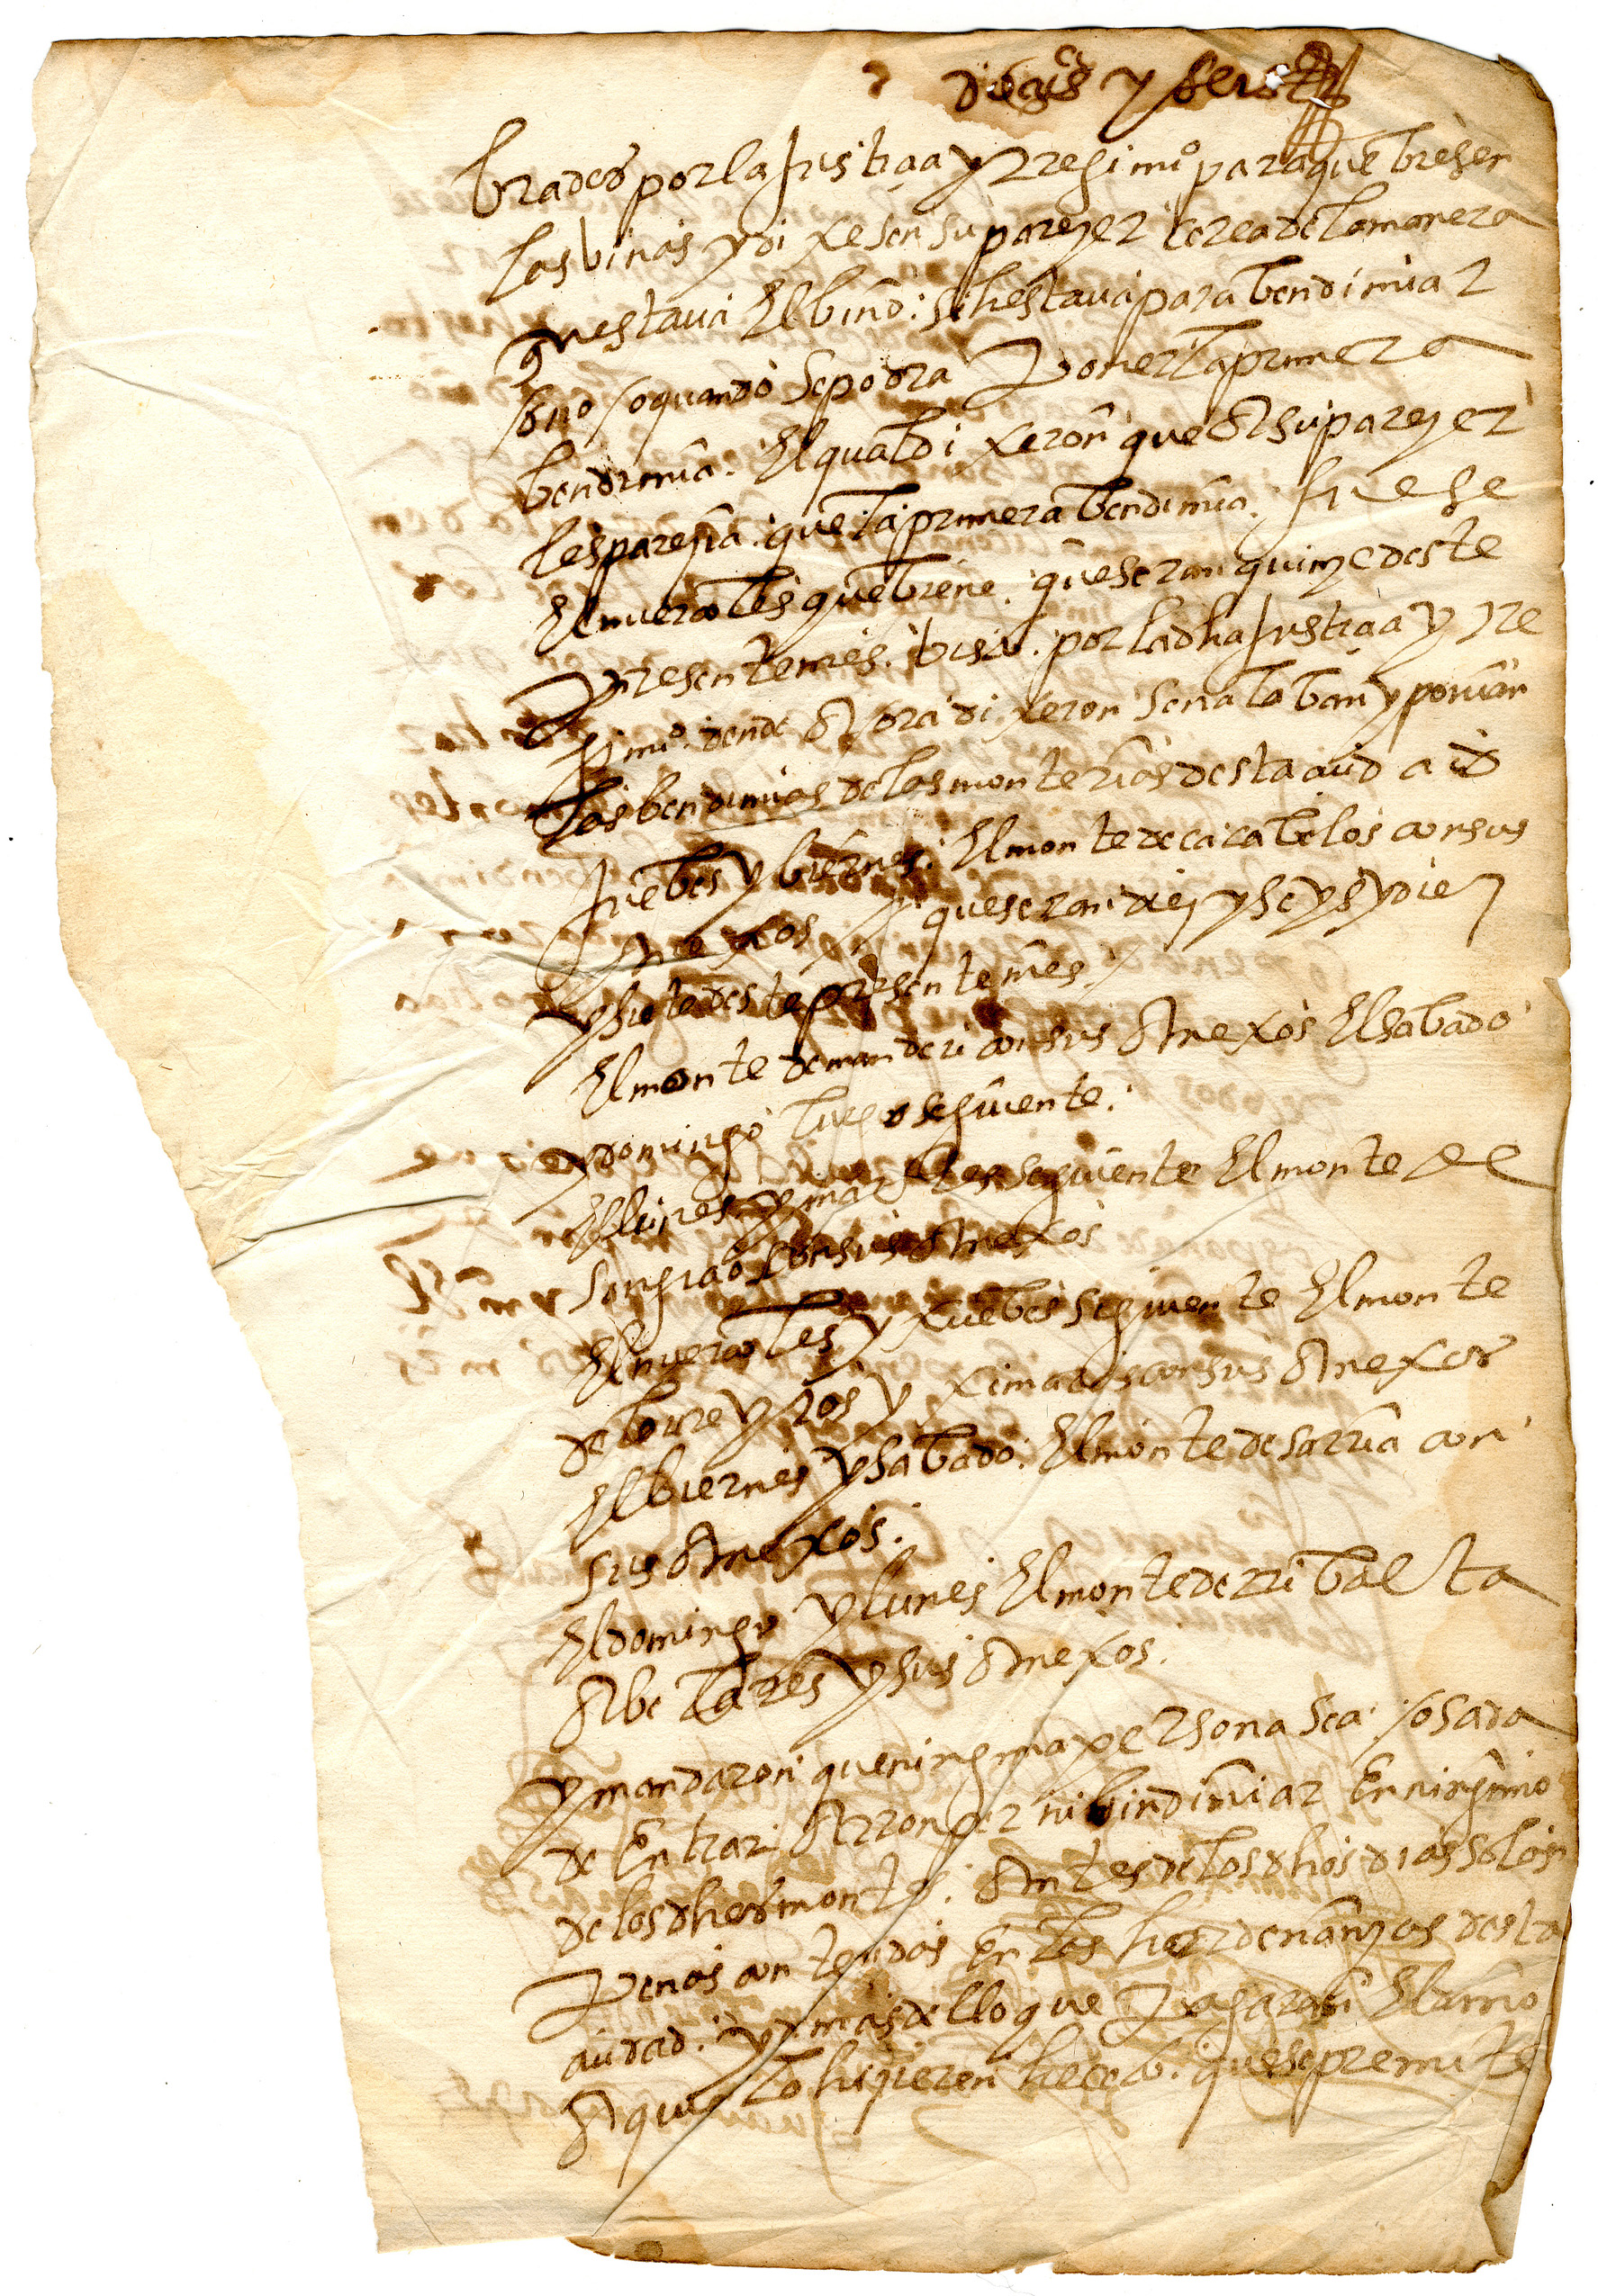 diecis y seis
brados por la justiçia y rregimio para que biesen
las binas y dixesen su pareçer çerca de la manera
questava el bino: si hestava para bendimiar
o no / o quando se podra poner la primera
bendimia. El qual dixeron que a su pareçer
les pareçia que la primera bendimia fuese
el miercoles que biene. que seran quinçe deste
presente mes. bisto. por la dha justiçia y rre
gimio. dende aora dixeron senalaban y ponian
las bendimias de las monterias desta çiudad
juebes y biernes. El monte de cacabelos con sus
anexos / que seran dieç y seys y dieç
y siete deste presente mes.
El monte de manderi con sus anexos El sabado
y domingo luego seguiente.
El lunes y martes seguiente El monte de
con sus anexos
El miercoles y xuebes seguiente El monte
de torreyros y ximadis con sus anexos
El biernes y sabado. El monte de sarria con
sus anexos.
El domingo y lunes El monte de rribalta
abelares y sus anexos.
y mandaron que ninguna persona sea / osada
de entrar a rronper ni bindimiar En ninguno
de los dhos montes. antes de los dhos dias so las
penas contenidas En las hordenanças desta
çiudad. y demas dello que pagaran El daño
a quien lo hiçieren heçeto. que se premite